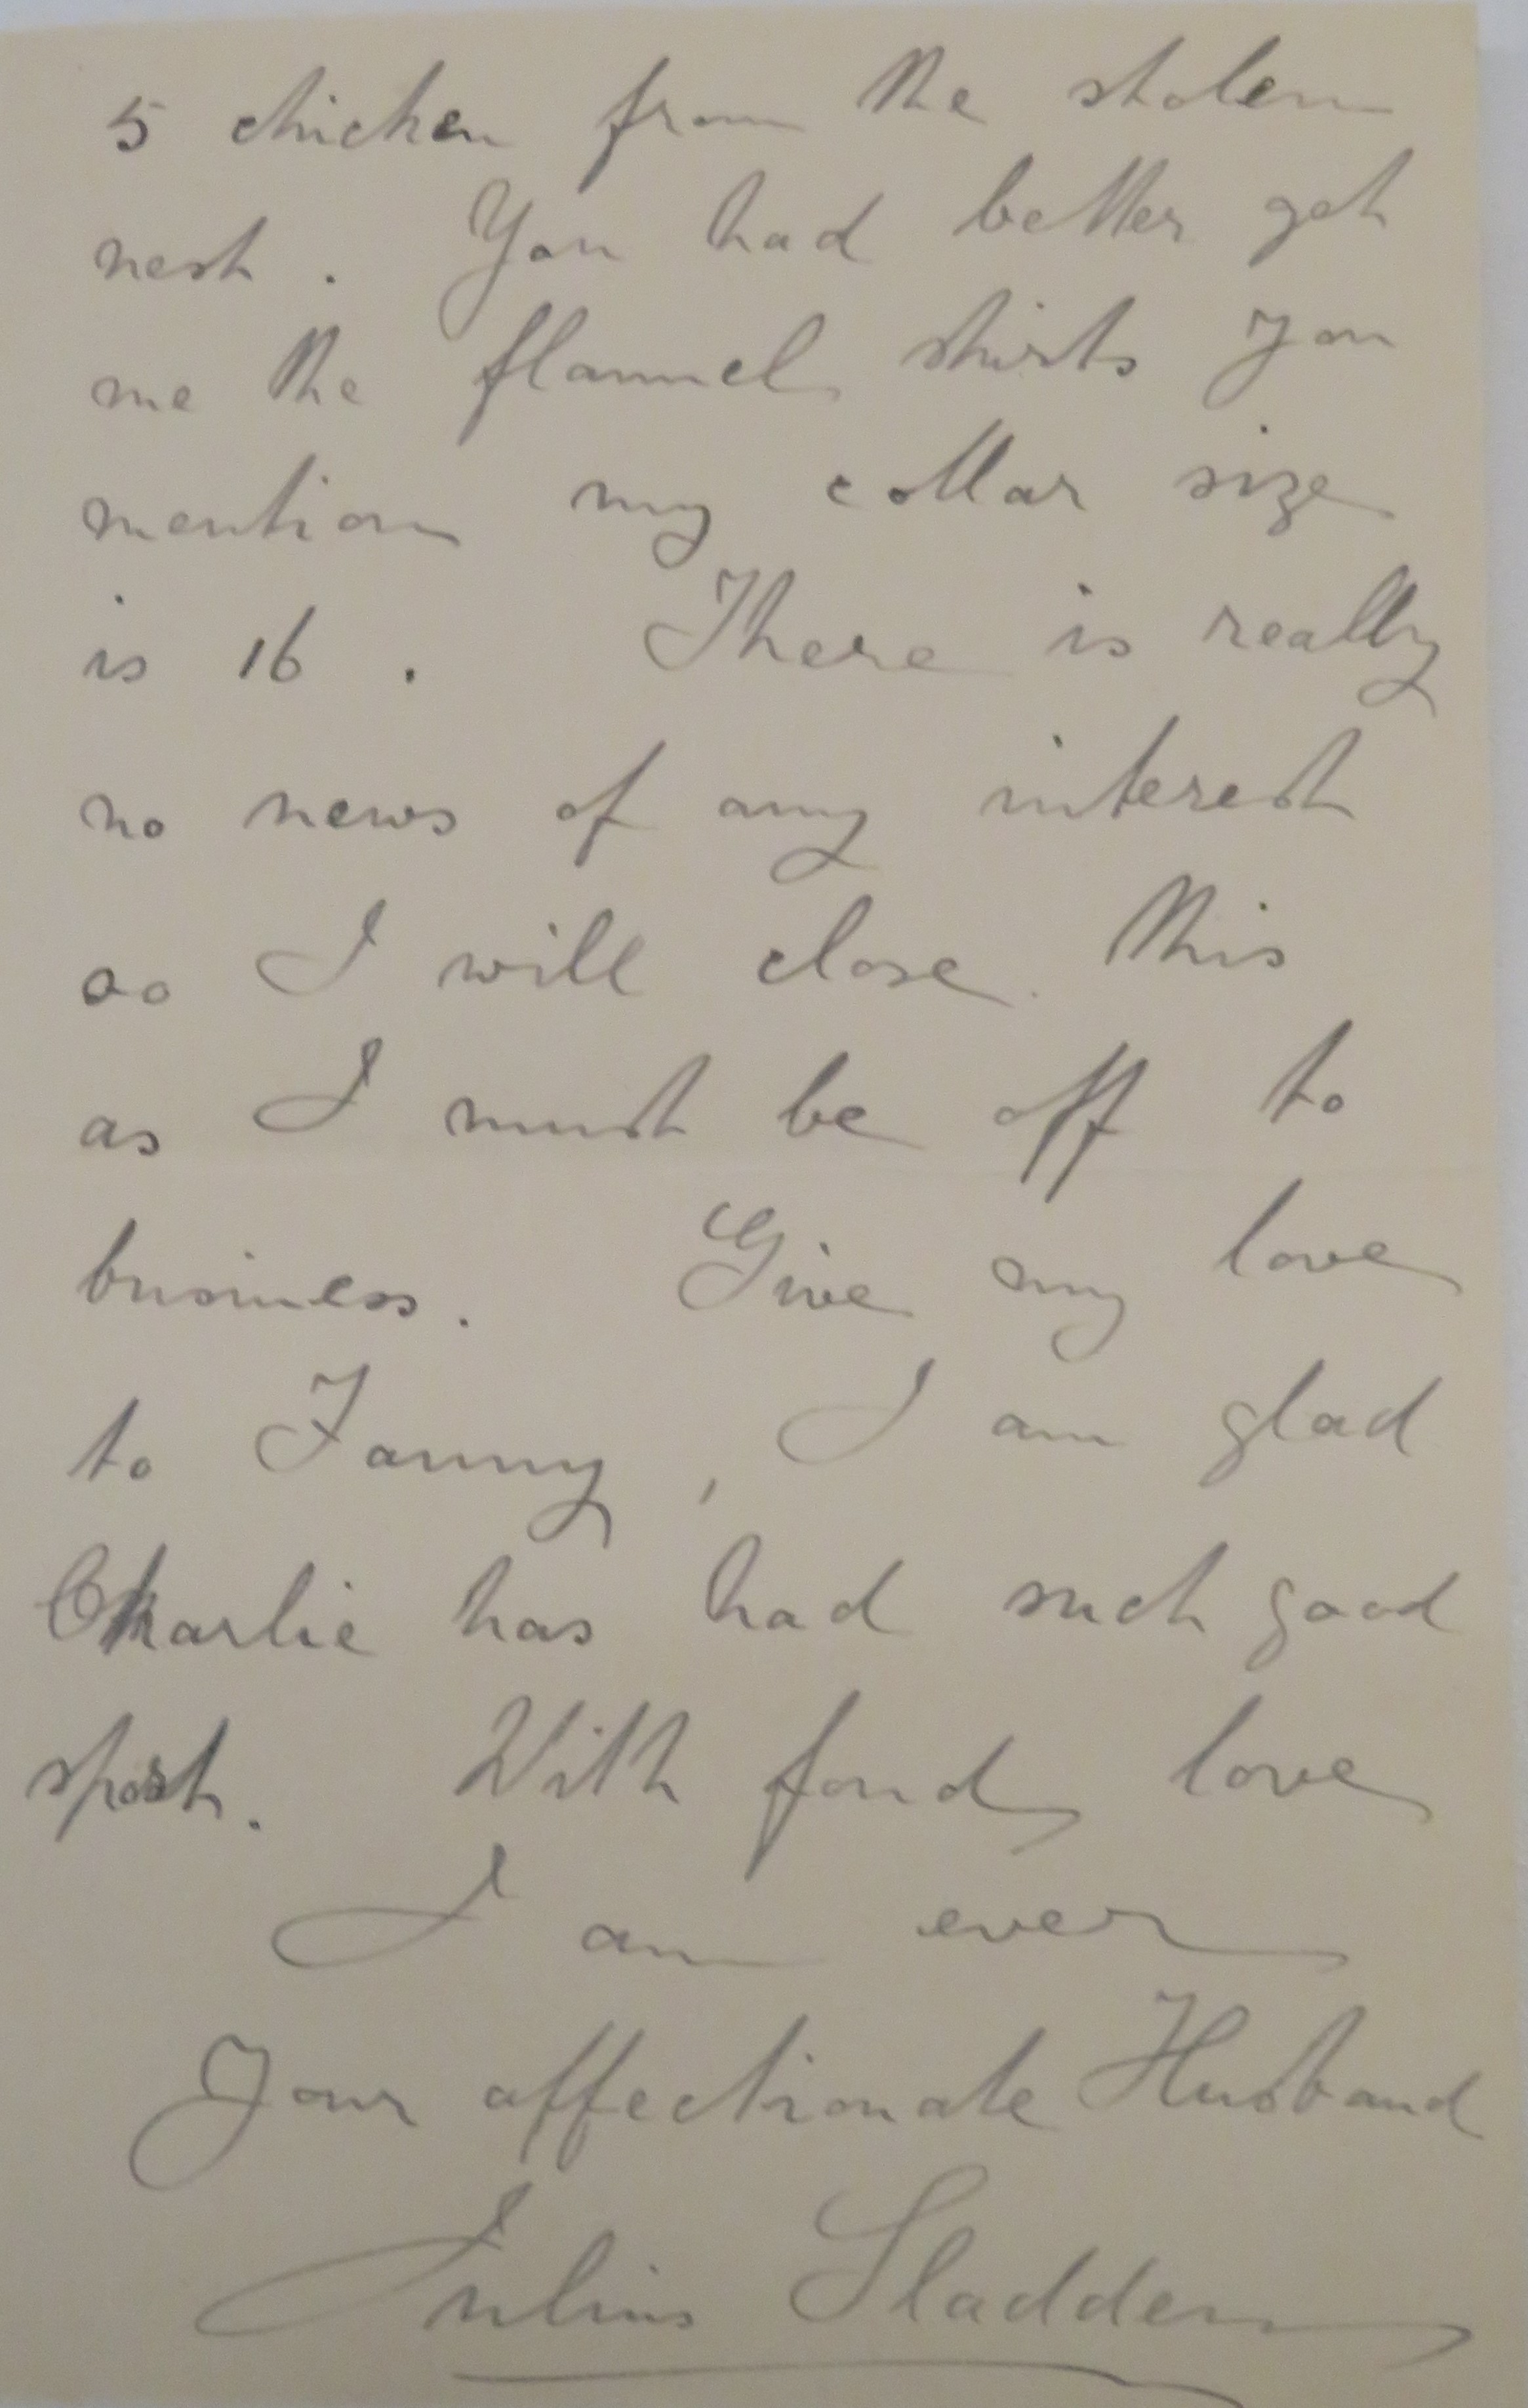 5 chicken from the stolen
nest. You had better get
me the flannel shirts you
mention my collar size
is 16. There is really
no news of any interest
so I will close this
as I must be off to
business. Give my love
to Fanny, I am glad
Charlie has had such good
sport. With fond love
I am ever
Your affectionate Husband
Julius Sladden